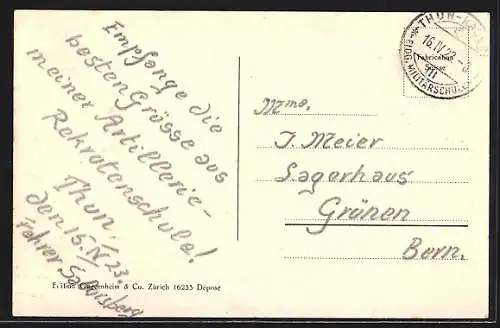 Empfange die
besten Grüsse aus
meiner Artillerie-
Rekrutenschule!
Thun,
den 15. IV 23.
Fahrer Salvisberg
THUN
16. IV 23
VII
EIDG. MILITÄRSCHULE
Fabrication
Suisse
Mme,
J. Meier
Lagerhaus
Grünen
Bern.
Edition Guggenheim & Co. Zürich 16233 Déposé